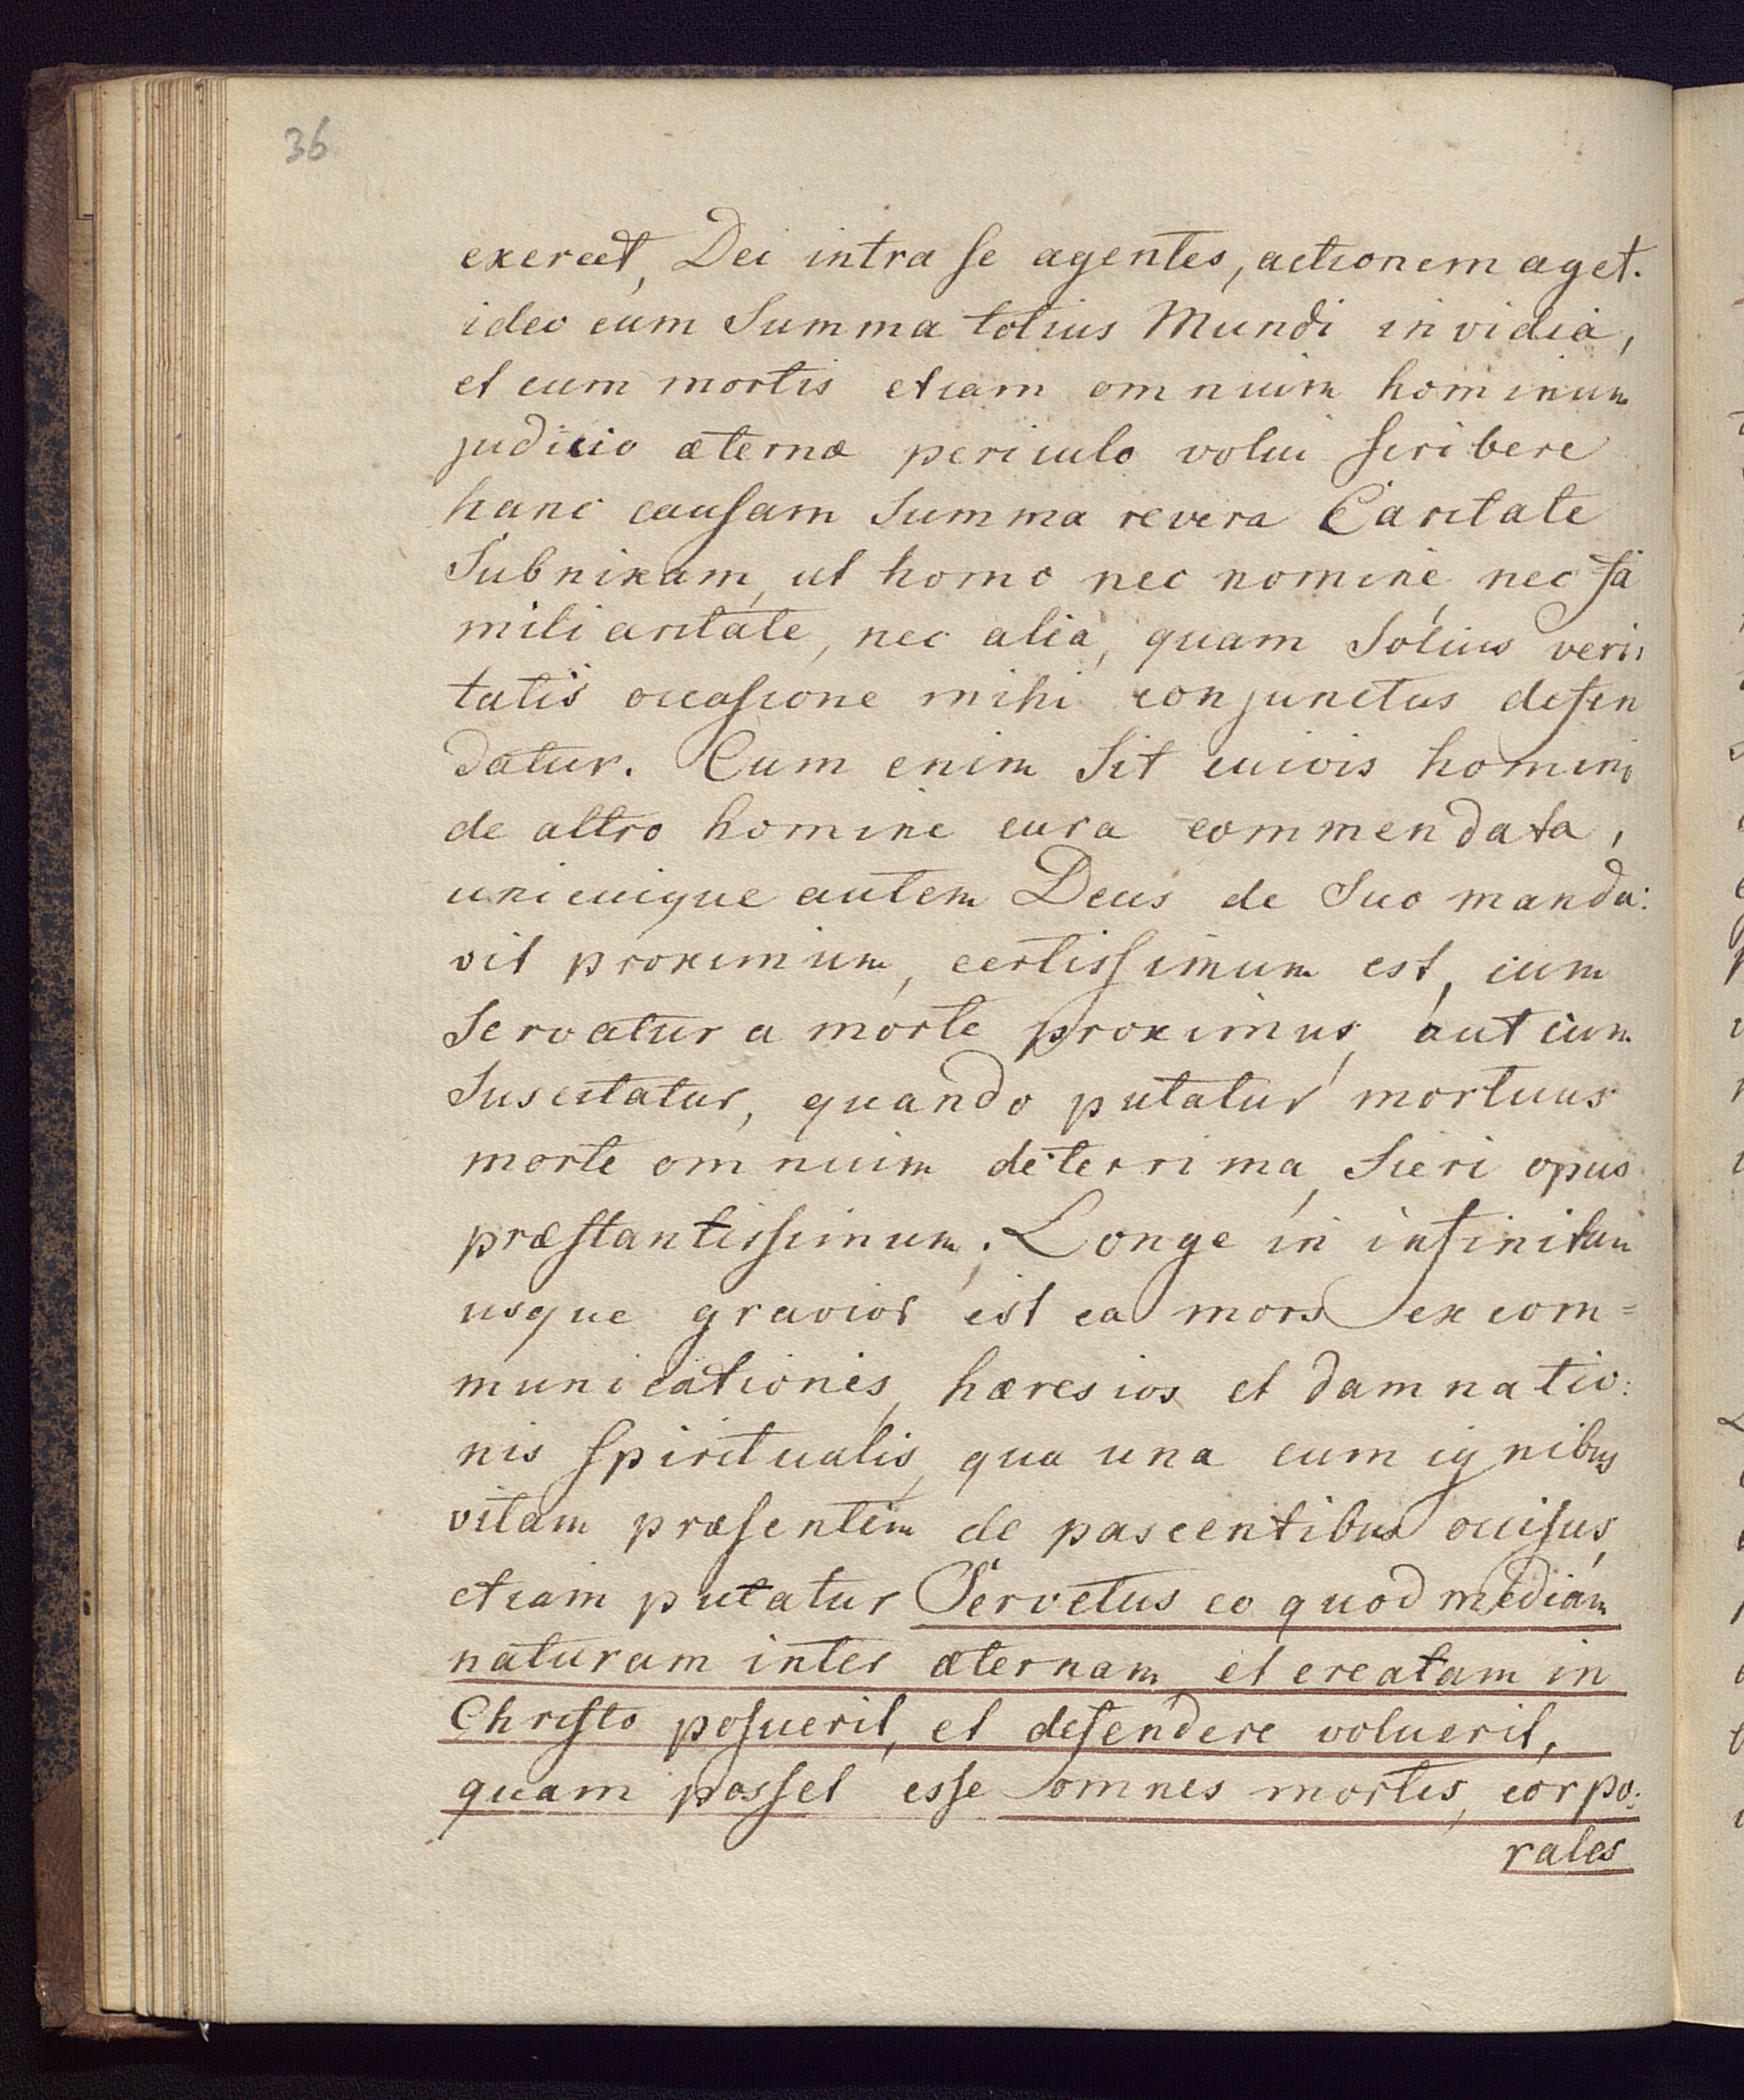 36
exercet, Dei intra se agentes, actionem aget.
ideo cum Summa totius Mundi invidia,
et cum mortis etiam omnium hominum
judicio æternæ periculo volui scribere
hanc causam Summa revera Caritate
Subnixam, ut homo nec nomine, nec fa
miliaritate, nec alia, quam Solius veri,
tatis occasione mihi conjunctus defen
datur. Cum enim Sit cuivis homini
de altro homine cura commendata,
unicuique autem Deus de Suo manda:
vit proximum, certissimum est, cum
Servatur a morte proximus, aut cum
Suscitatur, quando putatur mortuus
morte omnium deterrima, fieri opus
præstantissimum. Longe in infinitum
usque gravior est ea mors excom=
municationis, hæresios et damnatio:
nis spiritualis, qua una cum ignibus
vitam præsentem depascentibus occisus,
etiam putatur Servetus eo quod mediam
naturam inter æternam et creatam in
Christo posuerit, et defendere voluerit,
quam posset esse omnes mortis, corpo:
rales